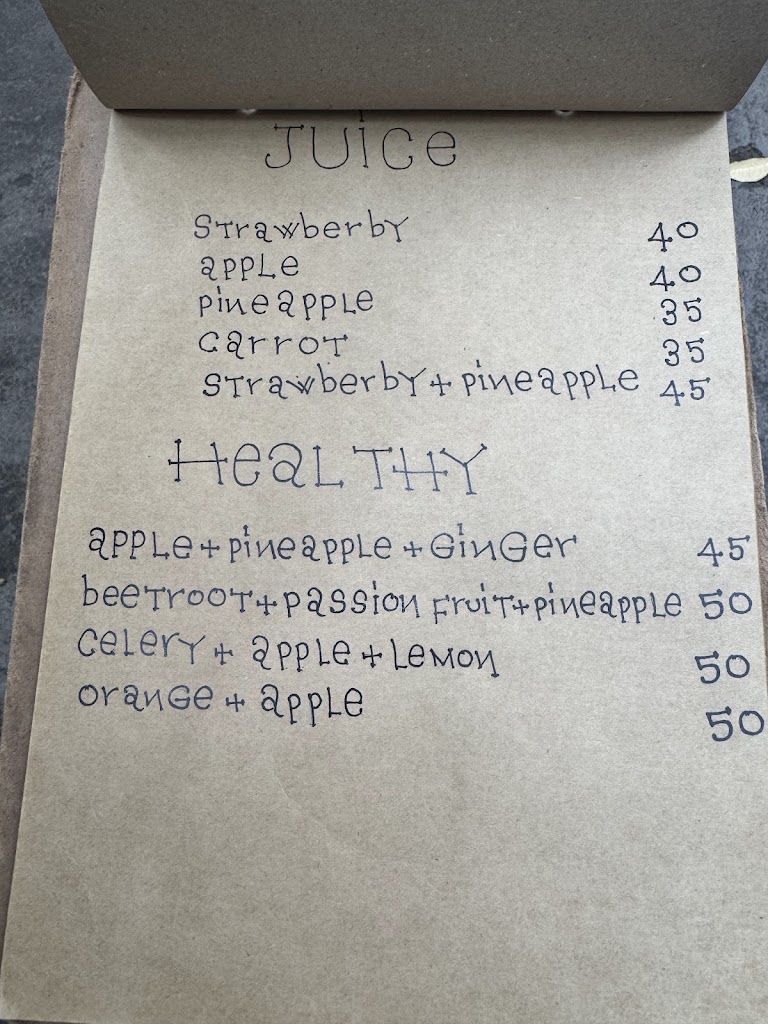 JUice
STrawberbY 40
apple 40
pineapple 35
carroT 35
STrawberbY + pineapple 45
HeaLTHY
apple + pineapple + GinGer 45
beeTrooT + passion FruiT + pineapple 50
celerY + apple + Lemon 50
oranGe + apple 50